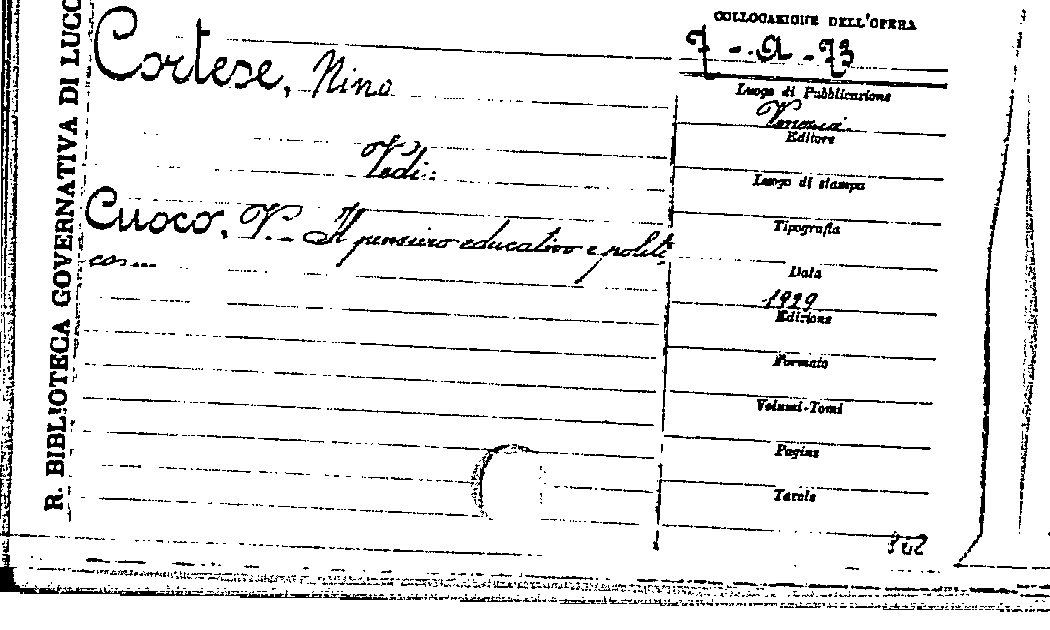 R. BIBLIOTECA GOVERNATIVA DI LUCC
Cortese, Nino
Vedi:
Cuoco, V. - Il pensiero educativo e politi
co....
COLLOCAZIONE DELL'OPERA
7 - a - 73
Luogo di Pubblicazione
Venezia
Editore
Luogo di stampa
Tipografia
Data
1929
Edizione
Formato
Volumi-Tomi
Pagine
Tavole